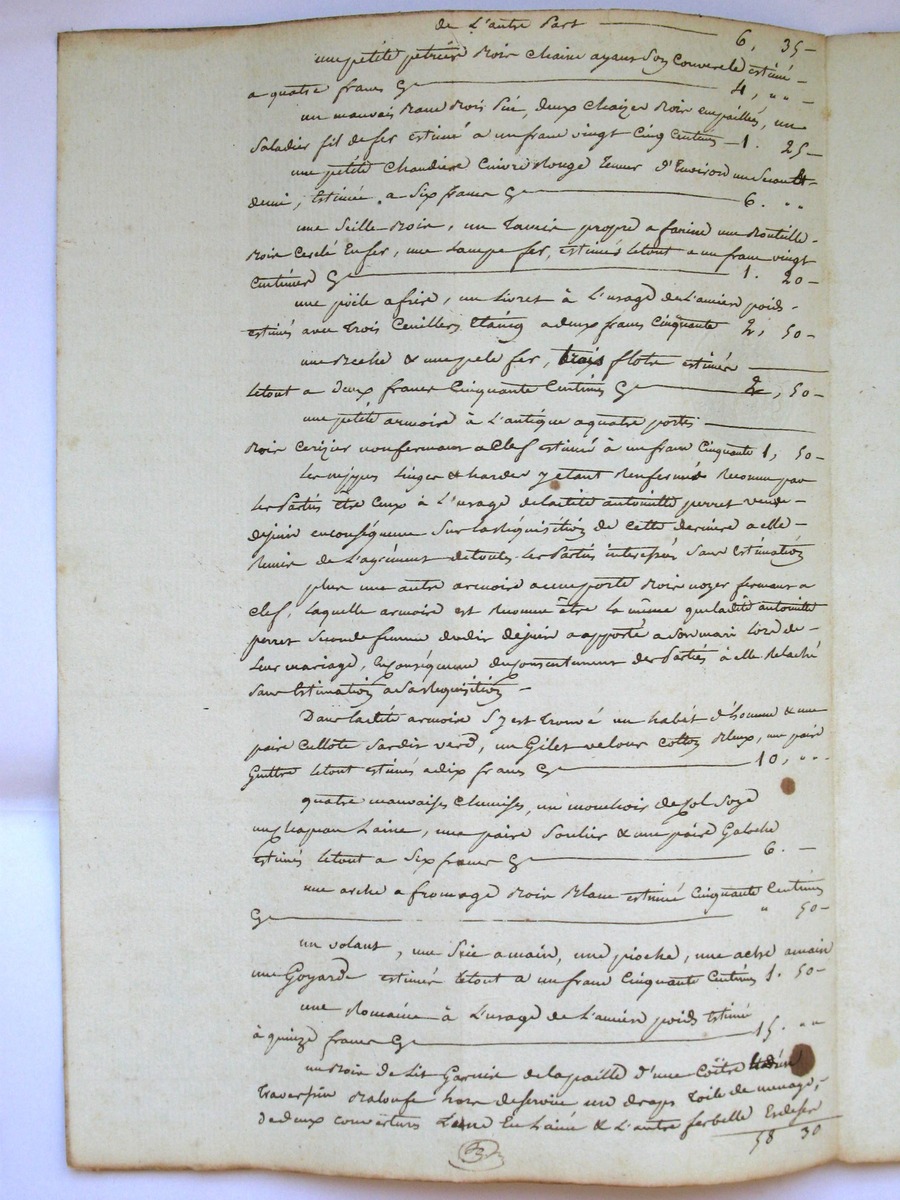 de L'autre Part — 6, 35 –
une petite petriere Boir chaine ayant son Couvercle estimé –
a quatre francs Cy — 4, ,, ,, –
un mauvais Banc Bois Sié, deux chaizes Boir empaillés, un
Saladier fil de fer estimé a un franc vingt Cinq Centimes – 1. 25 –
une petite Chaudiere Cuivre Rouge Tenner d'Environ un Seau Et
demi, Estimée a Six francs Cy — 6. ,, ,,
une Seille Boir, un Tamir propre a farine une Bouteille
Boir Cerclé En fer, une Lampe fer, estimés Letout a un franc vingt
Centimes Cy — 1. 20 –
une pöile a frire, un Livret à L'usage de L'ancien poids –
estimés avec Trois Ceuillers Etaing a deux francs Cinquante 2, 50 –
une Beche & une pele fer, trois flotes estimés —
Letout a deux francs Cinquante Centimes Cy — 2, 50 –
une petite armoire à L'antique a quatre portes —
Boir Cerizier non fermant a Clef estimé à un franc Cinquante 1, 50 –
Les nippes Linges & hardes y etant Renfermés Reconnu par
Les Parties Etre Ceux à L'usage de laditte antoinette perret veuve
dejuin en conséquence Sur la Réquisition de Cette derniere a elle –
Remis de L'agrément de toutes Les Parties interessés Sans Estimation
plus une autre armoire a une porte Boir noyer fermant a
Clef, laquelle armoire est Reconnue être la même que ladite antoinette
perret Seconde femme dudit dejuin a apporté a Son mari Lors de –
Leur mariage, En conséquence du consentement des Parties à elle Relaché
Sans Estimation a Sa Requisition –
Dans ladite armoire S'y est Trouvé un habit d'homme & une
paire Cullote Sardis verd, un Gilet velour Cotton Bleux, une paire
Guettre Letout estimés a dix francs Cy — 10, ,, ,,
quatre mauvaises Chemises, un mouchoir de Col Soye
un Chapeau Laine, une paire Soulier & une paire Galoche
estimés Letout a Six francs Cy — 6. –
une arche a fromage Boir Blanc estimé Cinquante Centimes
Cy — ,, 50 –
un volant, une Scie a main, une pioche, une ache a main
une Goyarde estimés Letout a un franc Cinquante Centimes 1. 50 –
une Romaine à L'usage de L'ancien poids Estimé
à quinze francs Cy — 15. ,, ,,
un Boir de Lit Garnis de la paille d'une Coitre
Traversin Baloufe hors de Service un draps Toile de menage, –
de deux couvertures L'une En Laine & L'autre
58 30